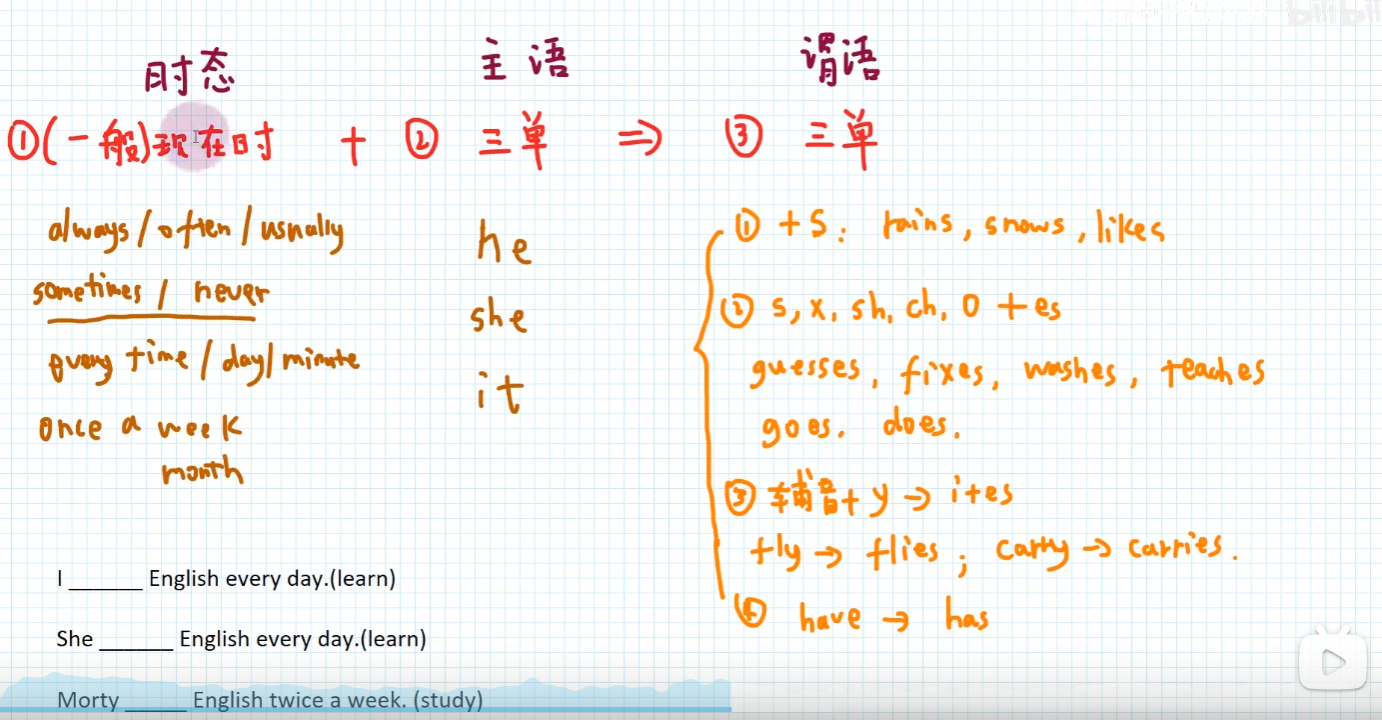 bilibili
时态 主语 谓语
①(一般)现在时 + ② 三单 => ③ 三单
always/often/usually
sometimes/ never
every time/day/minute
once a week
month
he
she
it
① +s: rains, snows, likes
② s, x, sh, ch, o +es
guesses, fixes, washes, teaches
goes. does.
③ 辅音+y→i+es
fly→flies; carry→carries.
④ have→has
I ______ English every day.(learn)
She ______ English every day.(learn)
Morty _____ English twice a week. (study)